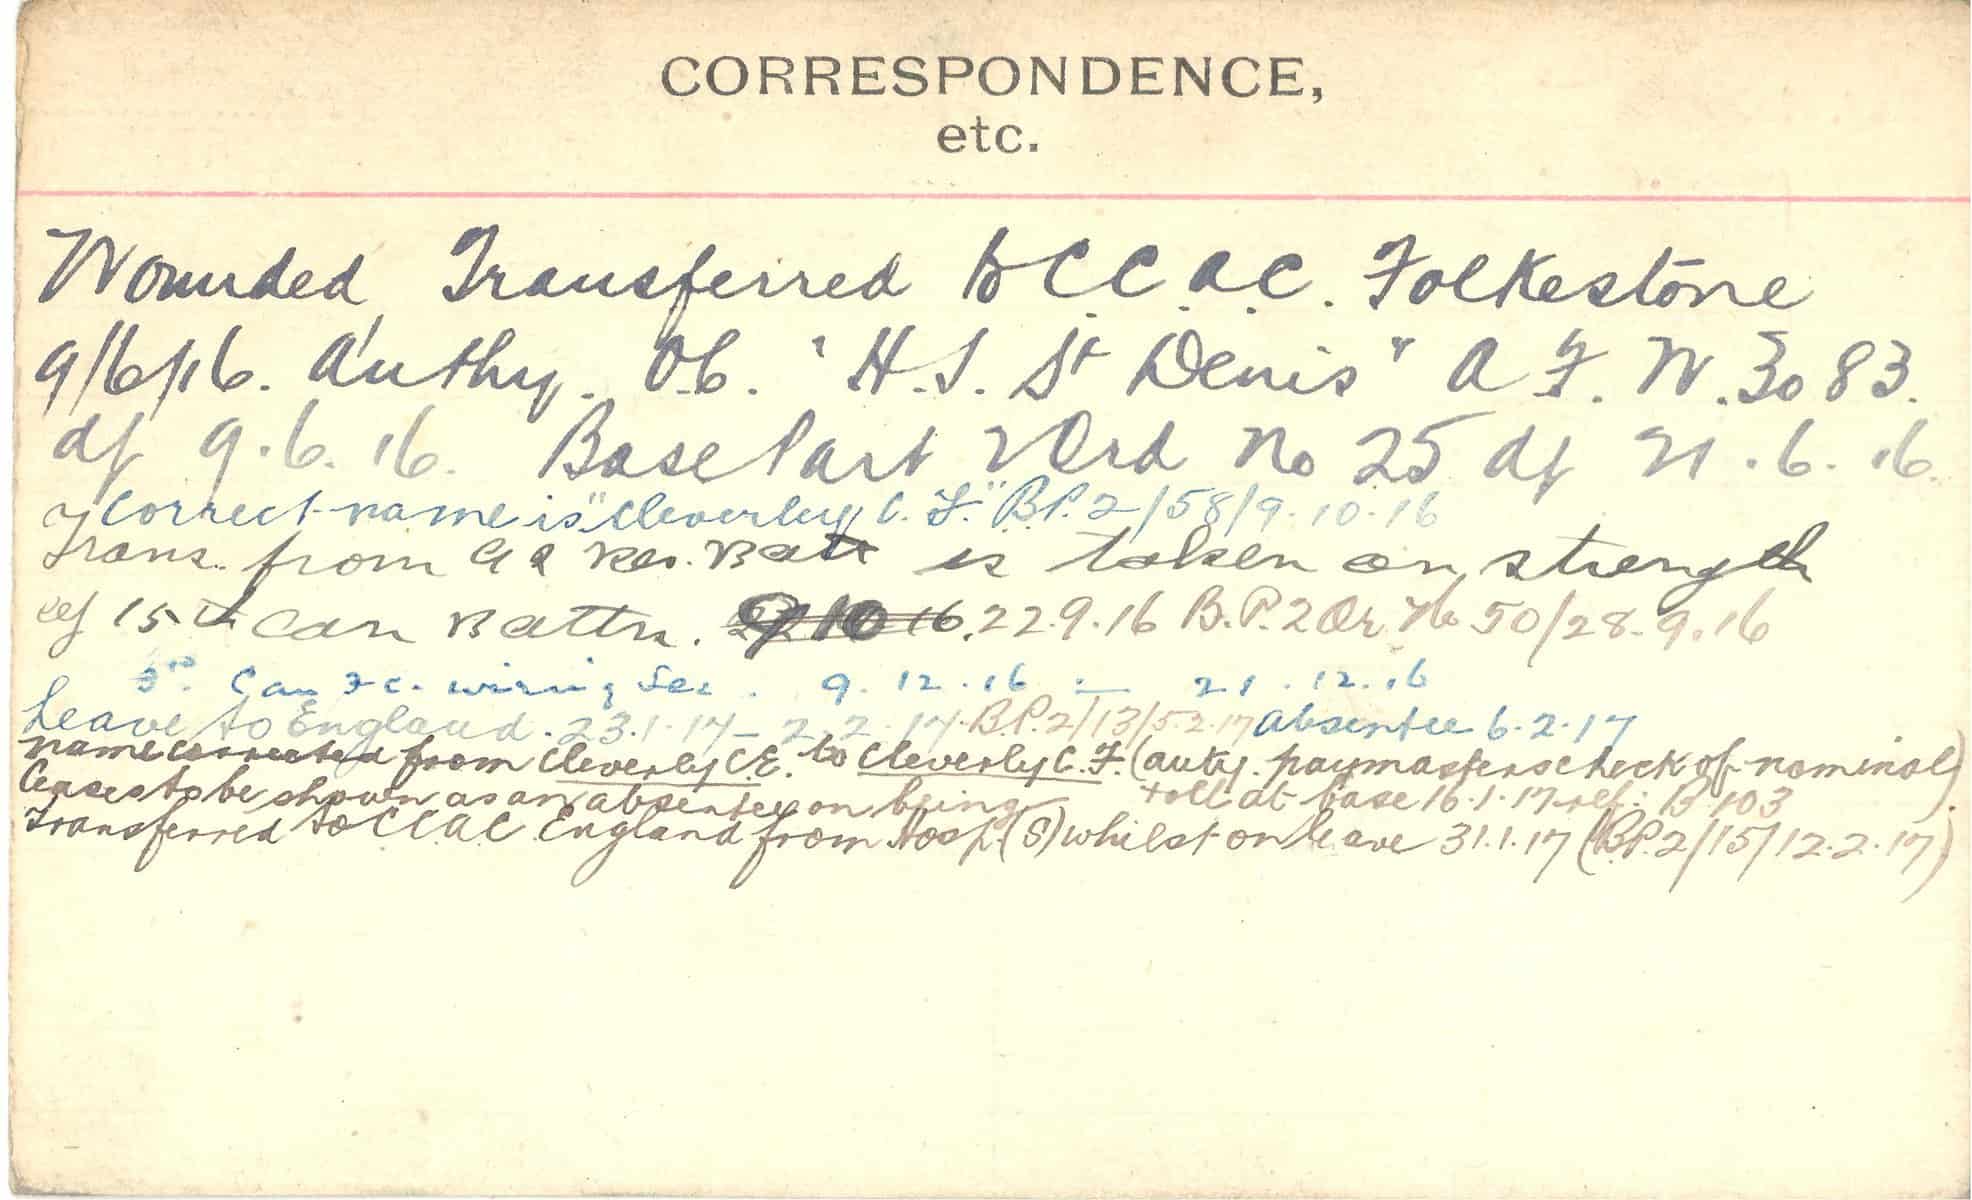 CORRESPONDENCE,
etc.
Wounded Transferred to C.C.A.C. Folkestone
9/6/16. Authy. O.C. "H.S. St Denis" A.F. W.3083.
df 9.6.16. Base Part 2 Ord No 25 df 21.6.16.
Correct name is "Cleverley C.F." B.P.2/58/9.10.16
Trans. from Res. Batt is taken on strength
of 15th Can Battn. 22.9.16 B.P.2 Or No 50/28.9.16
Can wiring Sec. 9.12.16 - 21.12.16
Leave to England. 23.1.17 - 2.2.17. B.P.2/13/5.2.17 Absentee 6.2.17
Name corrected from Cleverly C.E. to Cleverly C.F. (auty. paymasters check of nominal
roll at base 16.1.17 ref: B 103).
Ceases to be shown as an absentee on being
transferred to C.C.A.C England from Hosp. (S) whilst on leave 31.1.17 (B.P.2/15/12.2.17)